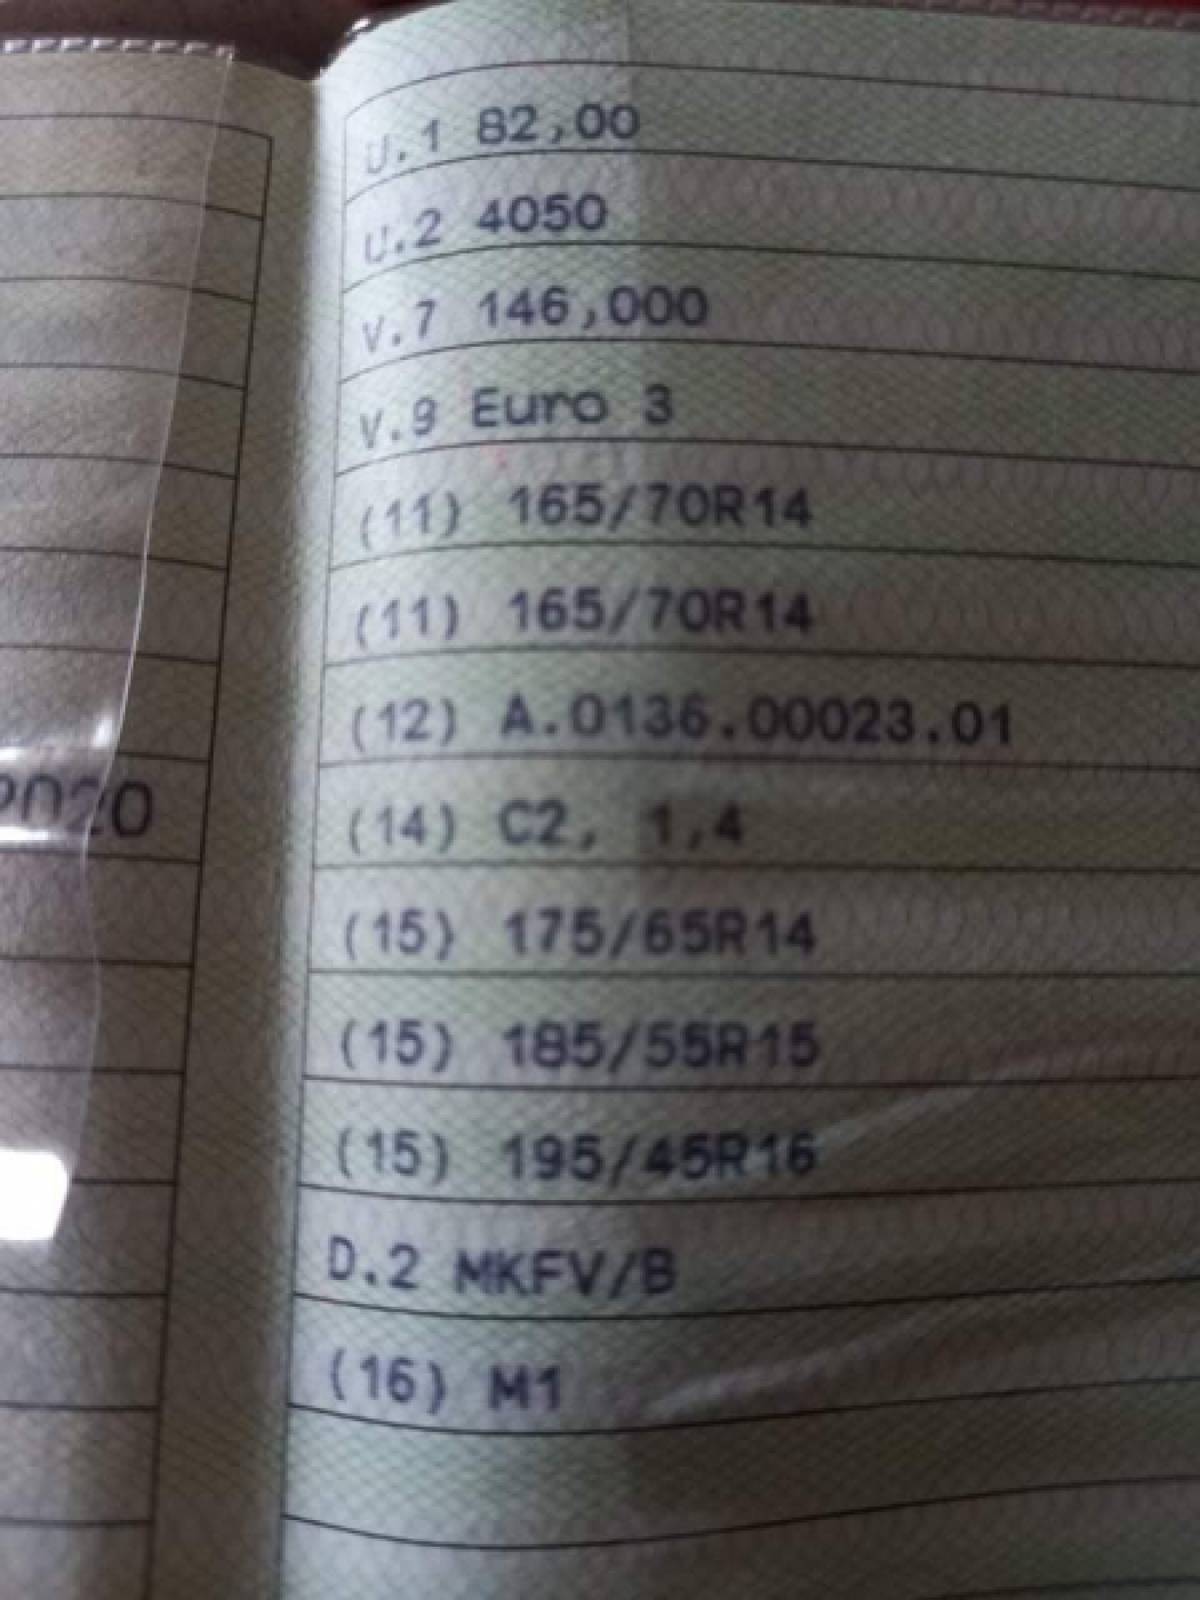 U.1 82,00
U.2 4050
V.7 146,000
V.9 Euro 3
(11) 165/70R14
(11) 165/70R14
(12) A.0136.00023.01
2020
(14) C2, 1,4
(15) 175/65R14
(15) 185/55R15
(15) 195/45R16
D.2 MKFV/B
(16) M1